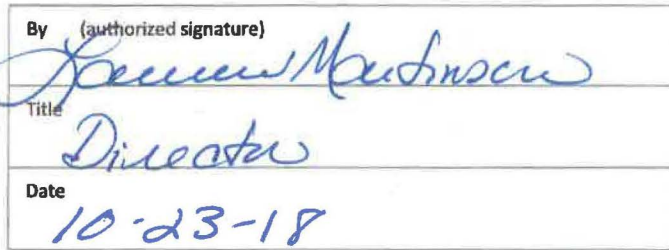 By (authorized signature)
Martinson
Title
Director
Date
10-23-18